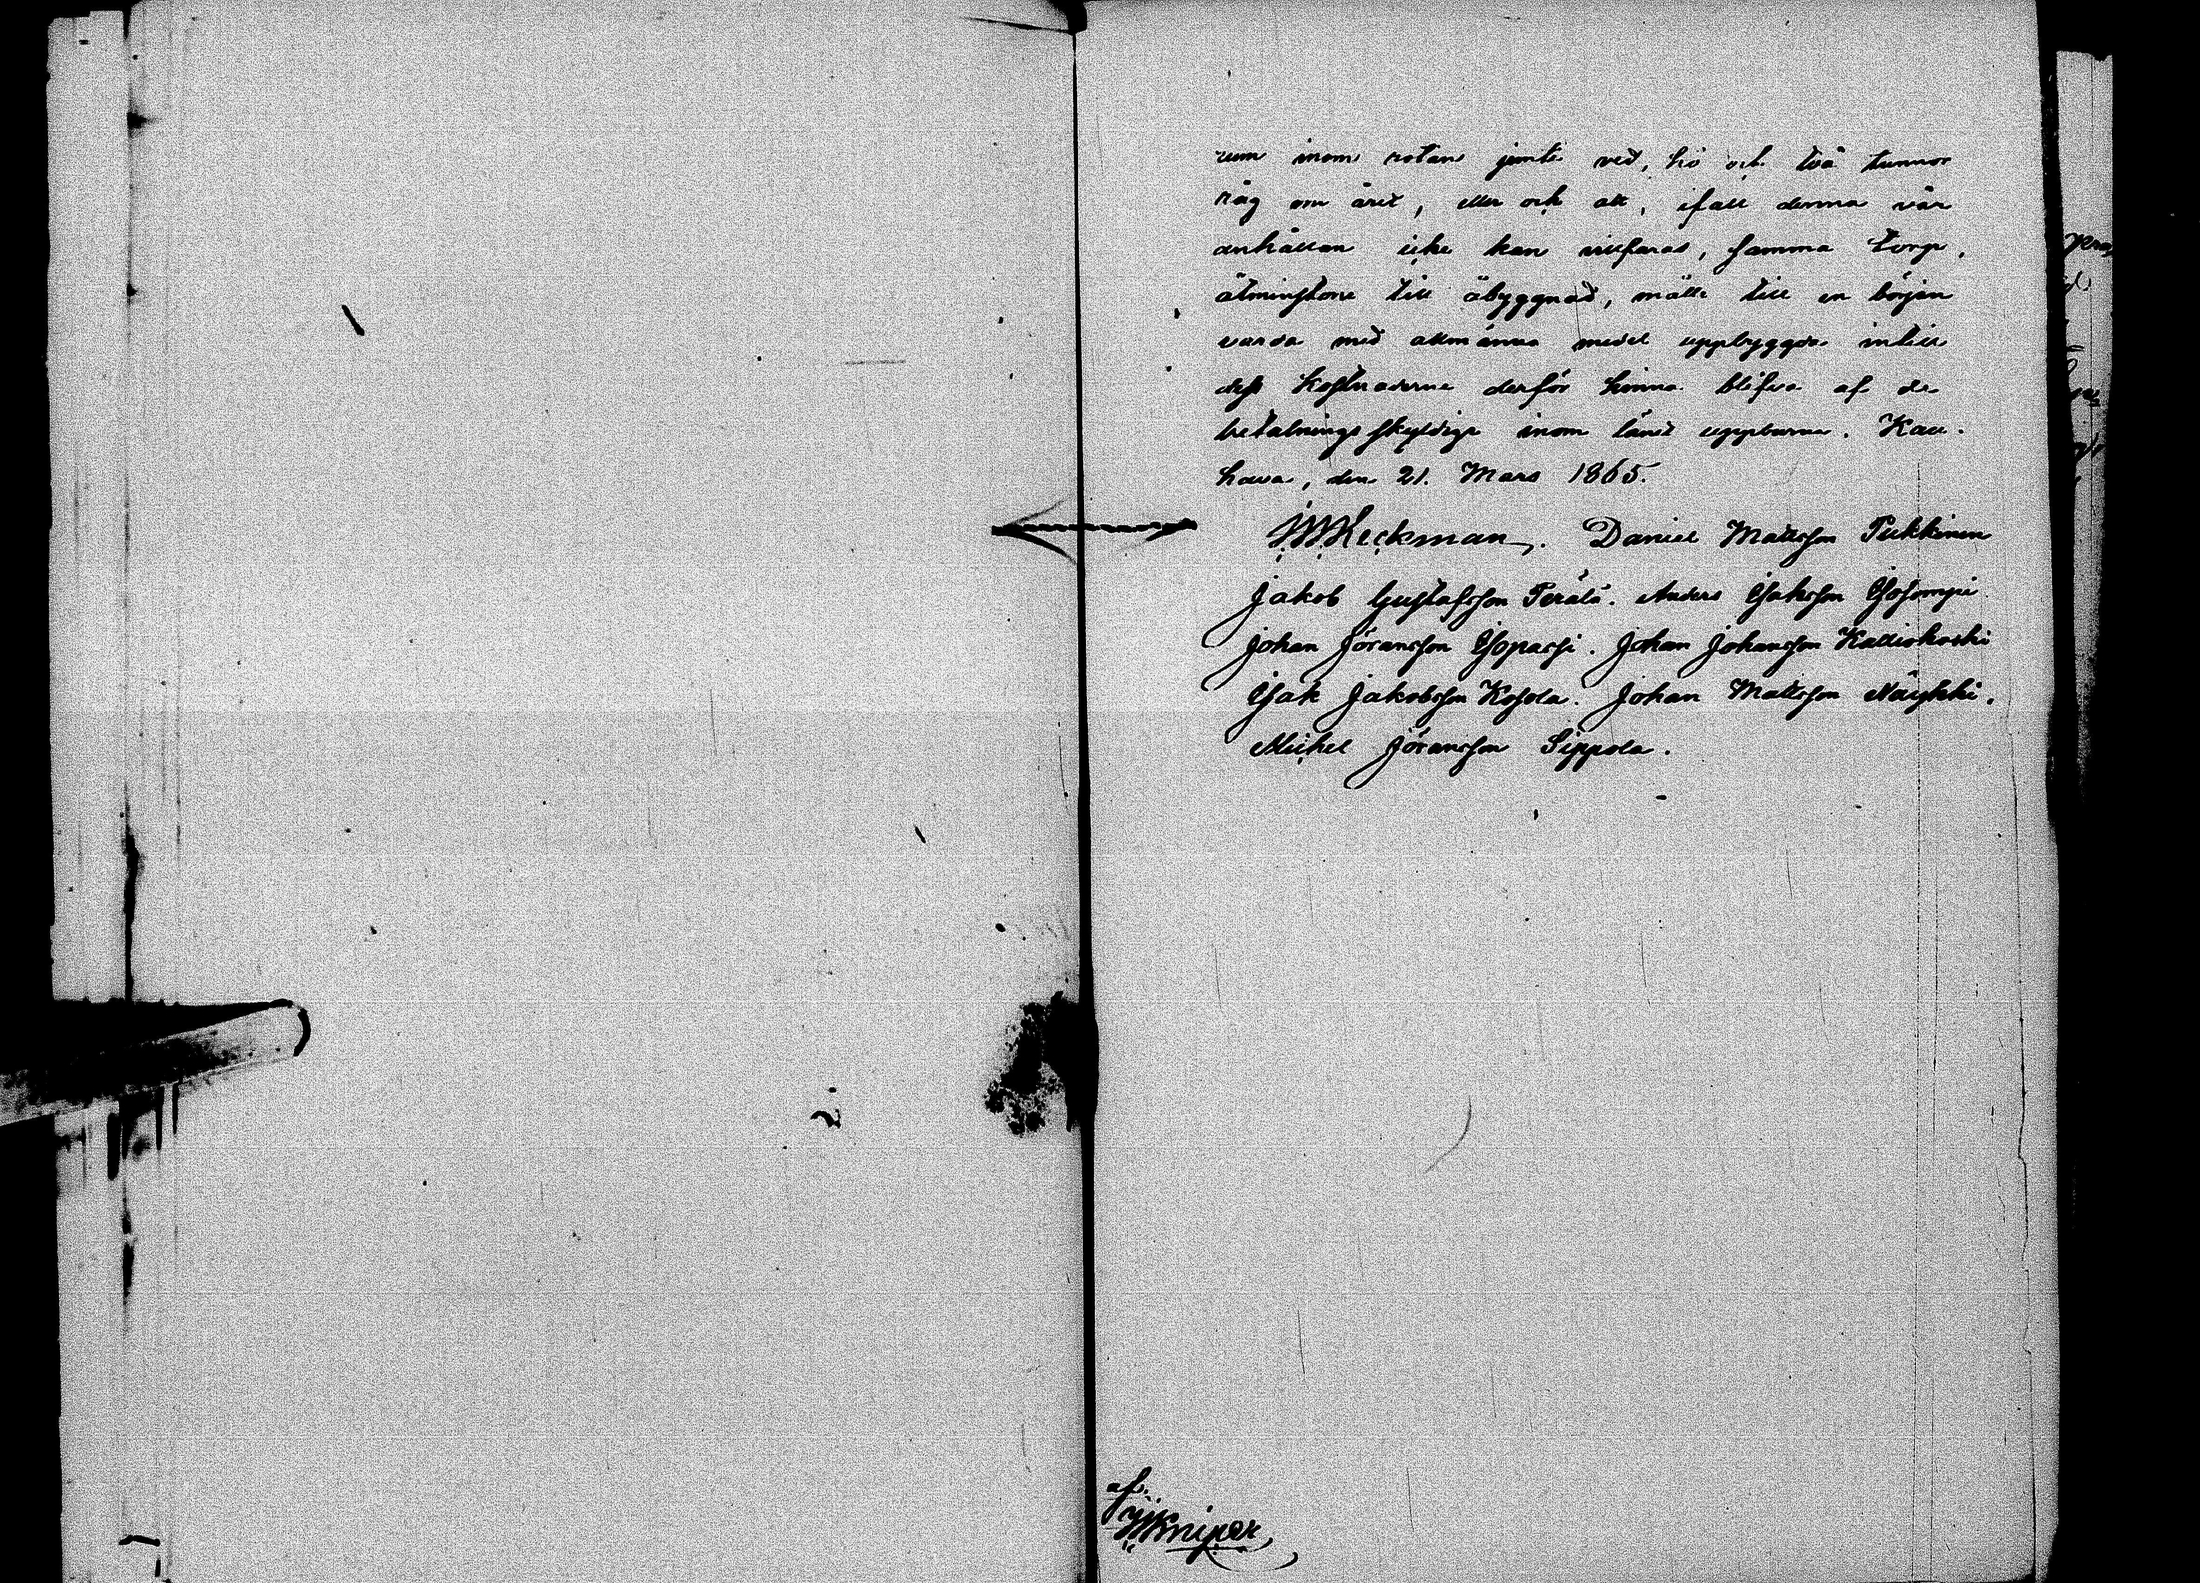 rum inom rotan jemte ved, hö och två tunnor
råg om året, eller och att, ifall denna vår
anhållan icke kan villfaras, samma torp,
åtminstone till åbyggnad, måtte till en början
varda med allmänna medel uppbyggda intill
dess kostnaderne derför hinna blifva af de
betalningsskyldige inom länet uppburna. Kau-
hava, den 21. Mars 1865.
Heckman. Daniel Mattsson Pukkinen
Jakob Gustafsson Perälä. Anders Isaksson Isosomppi
Johan Jöransson Isopassi. Johan Johansson Kalliokoski
Isak Jakobsson Kosola. Johan Mattsson Näykki.
Michel Jöransson Sippola.
af.
Kniper